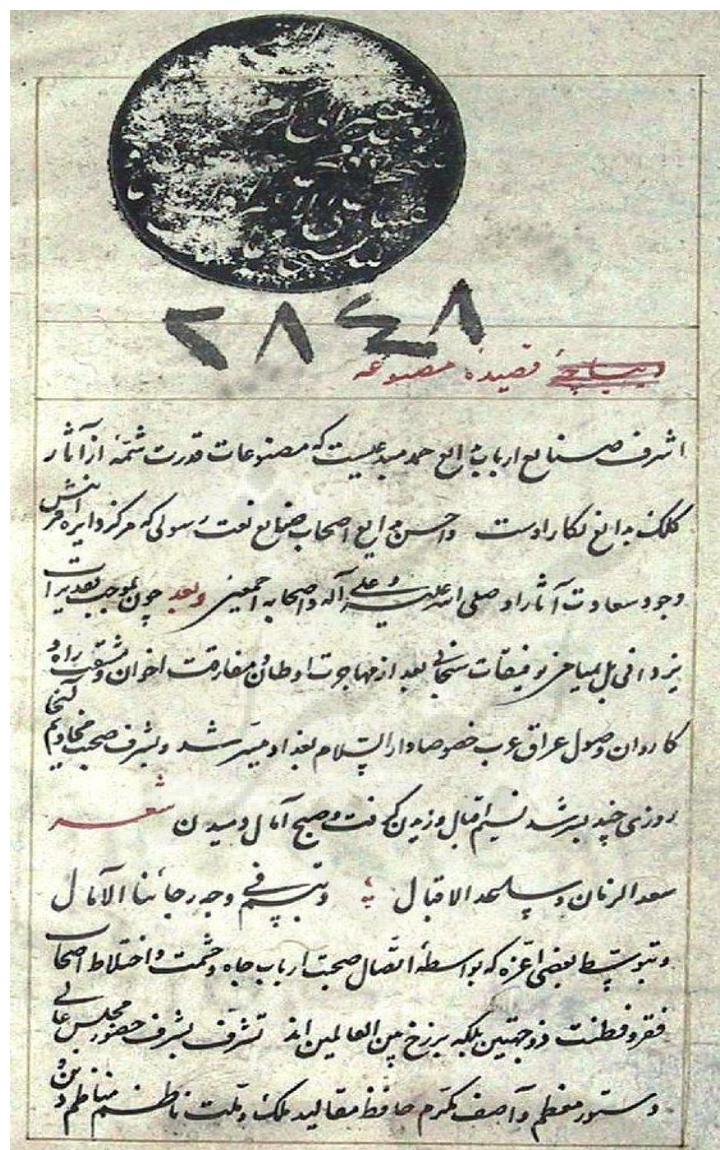 ۲۸۴۸
دیباچهٔ قصیدهٔ مصنوعه
اشرف صنایع ارباب بدایع حمد مبدعیست که مصنوعات قدرت شمّهٔ از آثار
کلک بدایع نگار اوست واحسن بدایع اصحاب صنایع نعت رسولی که مرکز دایره آفرینش
وجود سعادت آثار او صلی الله علیه و علی آله واصحابه اجمعین وبعد چون بموجب تقدیرات
یزدانی بل بمیامن توفیقات سبحانی بعد از مهاجرت اوطان و مفارقت اخوان ومشقت راه و
کاروان وصول عراق عرب خصوصا دار السّلام بغداد میسّر شد وبشرف صحبت مخادیم
روزی چند بسر شد نسیم اقبال وزیدن گرفت وصبح آمال دمیدن شعر
سعد الزمان وساعد الاقبال وتبسم فی وجه رجائنا الآمال
وبتوسّط بعضی اعزّه که بواسطهٔ اتّصال صحبت ارباب جاه وحشمت واختلاط اصحاب
فقر وفطنت ذو جهتین بلکه برزخ بین العالمین اند تشرّف بشرف حضور مجلس عالی
دستور معظم وآصف مکرّم حافظ مقالید ملک وملّت ناظم مناظم دین و